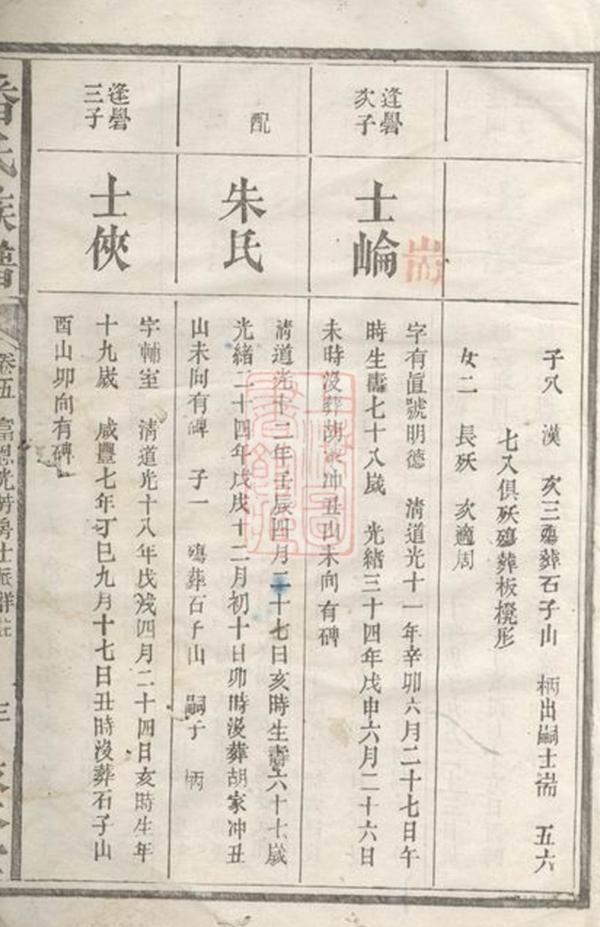 子六　漢　次三殤葬石子山　柄出嗣士耑　五六
七八俱殀殤葬板櫈形
女二　長殀　次適周
逢譽
次子
士崘
耑
字有寘號明德　清道光十一年辛卯六月二十七日午
時生壽七十八歲　光緒三十四年戊申六月二十六日
未時沒葬胡家冲丑山未向有碑
配
朱氏
清道光十二年壬辰四月二十七日亥時生壽六十七歲
光緒二十四年戊戌十二月初十日卯時沒葬胡家冲丑
山未向有碑　子一　殤葬石子山　嗣子　柄
逢譽
三子
士俠
字輔室　清道光十八年戊戌四月二十四日亥時生年
十九歲　咸豐七年丁巳九月十七日丑時沒葬石子山
酉山卯向有碑
潘氏族譜
卷五　富恩光芳房士派群